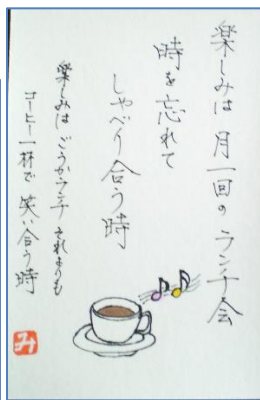 楽しみは月一回のランチ会
時を忘れて
しゃべり合う時
楽しみはごうかランチそれよりも
コーヒー一杯で笑い合う時
み